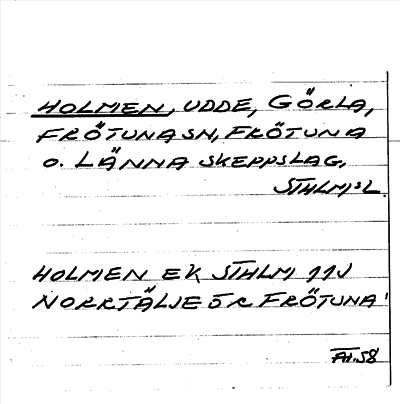 HOLMEN, UDDE, GÖRLA,
FRÖTUNA SN, FRÖTUNA
O. LÄNNA SKEPPSLAG,
STHLMS L.
HOLMEN EK STHLM 11J
NORRTÄLJE 5R FRÖTUNA